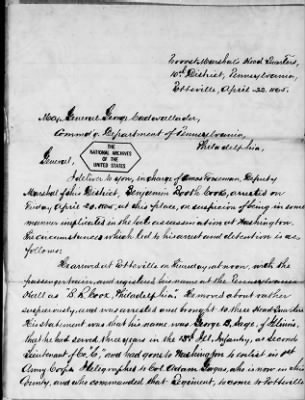 Provost Marshal's Head Quarters,
10th District, Pennsylvania,
Pottsville, April 22, 1865.
Maj. General George Cadwallader,
Commd'g. Department of Pennsylvania,
Philadelphia,
THE
NATIONAL ARCHIVES
OF THE
UNITED STATES
General,
I deliver to you, in charge of James Freeman, Deputy
Marshal of this District, Benjamin Booth Cook, arrested on
Friday April 20, 1865, at this place, on suspicion of being in some
manner implicated in the late assassination at Washington.
The circumstances which led to his arrest and detention is as
follows:
He arrived at Pottsville on Thursday, at noon, with the
passenger train, and registered his name at the Pennsylvania
Hall as "B. R. Cook, Philadelphia". He moved about rather
suspiciously, and was arrested and brought to these Head Quarters.
His statement was that his name was George B. of Illinois,
that he had served three years in the Ill. Infantry, as Second
Lieutenant of Co. "C", and had gone to Washington to enlist in 1st
Army Corps. I telegraphed to Col. Adam who is now in this
County, and who commanded that Regiment, to come to Pottsville